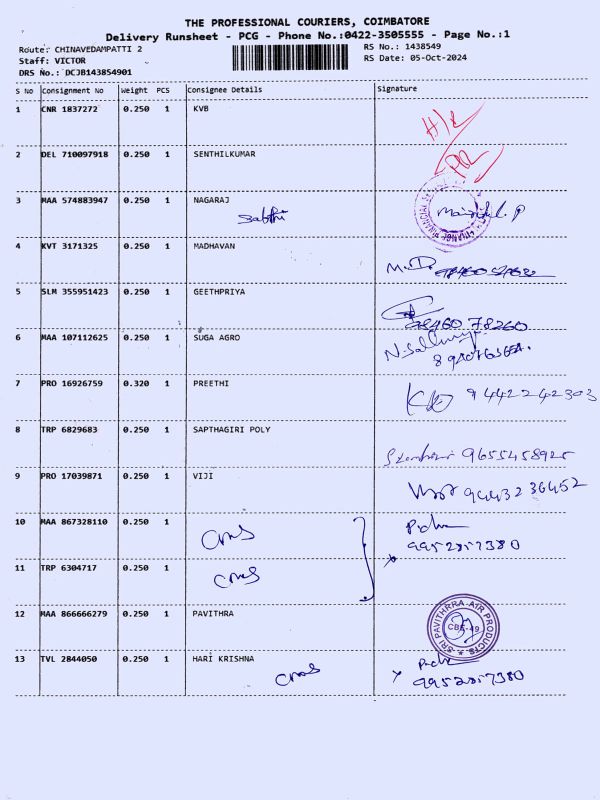 THE PROFESSIONAL COURIERS, COIMBATORE
Delivery Runsheet - PCG - Phone No.:0422-3505555 - Page No.:1
Route: CHINAVEDAMPATTI 2 RS No.: 1438549
Staff: VICTOR RS Date: 05-Oct-2024
DRS No.: DCJB143854901
S No Consignment No Weight PCS Consignee Details Signature
1 CNR 1837272 0.250 1 KVB
2 DEL 710097918 0.250 1 SENTHILKUMAR
3 MAA 574883947 0.250 1 NAGARAJ
4 KVT 3171325 0.250 1 MADHAVAN
5 SLM 355951423 0.250 1 GEETHPRIYA
78260
6 MAA 107112625 0.250 1 SUGA AGRO
7 PRO 16926759 0.320 1 PREETHI 9442242303
8 TRP 6829683 0.250 1 SAPTHAGIRI POLY
9655458925
9 PRO 17039871 0.250 1 VIJI
9443236452
10 MAA 867328110 0.250 1
9952857380
11 TRP 6304717 0.250 1
12 MAA 866666279 0.250 1 PAVITHRA
SRI PAVITHRRA AIR PRODUCTS
CBE-49
13 TVL 2844050 0.250 1 HARI KRISHNA
9952857380